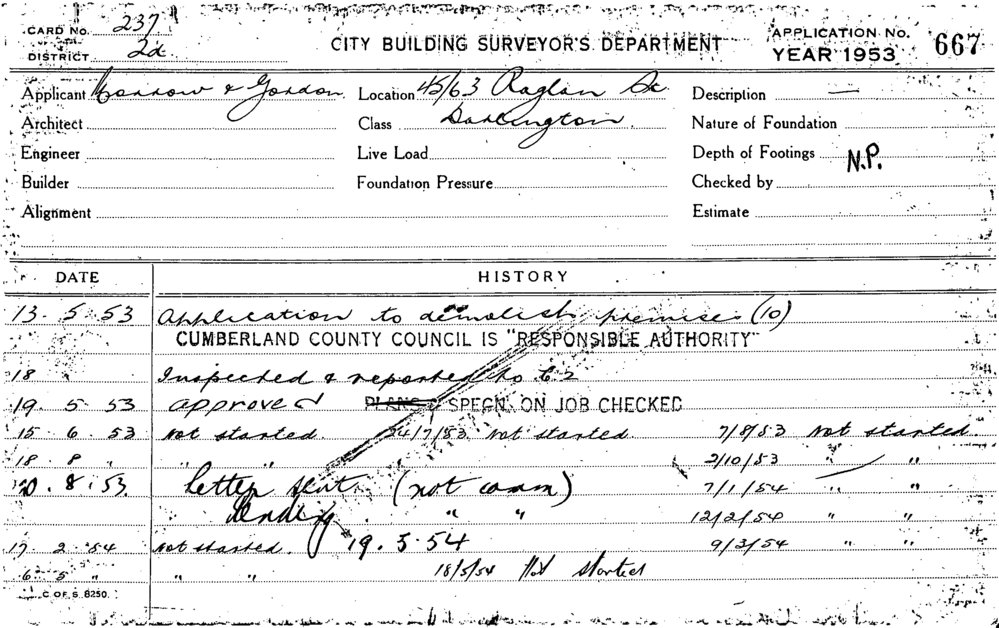 CARD No. 237
DISTRICT 2d
CITY BUILDING SURVEYOR'S DEPARTMENT
APPLICATION No. 667
YEAR 1953
Applicant & Gordon Location 45/63 Raglan St Description —
Architect Class Darlington Nature of Foundation
Engineer Live Load Depth of Footings N.P.
Builder Foundation Pressure Checked by
Alignment Estimate
DATE HISTORY
13. 5. 53 Application to demolish premises (10)
CUMBERLAND COUNTY COUNCIL IS "RESPONSIBLE AUTHORITY"
18 Inspected & reported to
19. 5 53 approved PLANS SPECN. ON JOB CHECKED
15. 6. 53 Not started. 24/7/53 Not started. 7/8/53 Not started.
18. 8 " " " " 2/10/53 " "
20. 8. 53. Letter sent (not comm) 7/1/54 " "
" " 12/2/54 " "
17. 2. 54 Not started. 19. 3. 54 9/3/54 " "
6. 5 " " " 18/5/54 Not started
C OF S 8250.